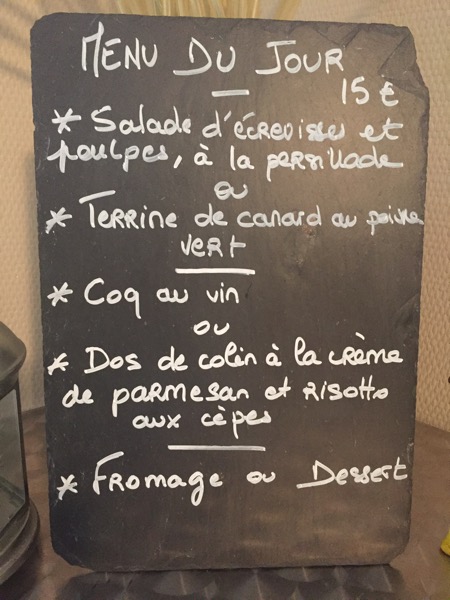 MENU DU JOUR
15 €
* Salade d'écrevisses et
poulpes, à la persillade
ou
* Terrine de canard au poivre
vert
* Coq au vin
ou
* Dos de colin à la crème
de parmesan et risotto
aux cèpes
* Fromage ou Dessert